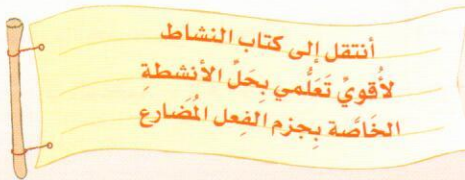 أنتقل إلى كتاب النشاط
لأُقويَ تَعَلُّمي بِحَلِّ الأنشطةِ
الخَاصَّة بِجزم الفِعل المُضَارع